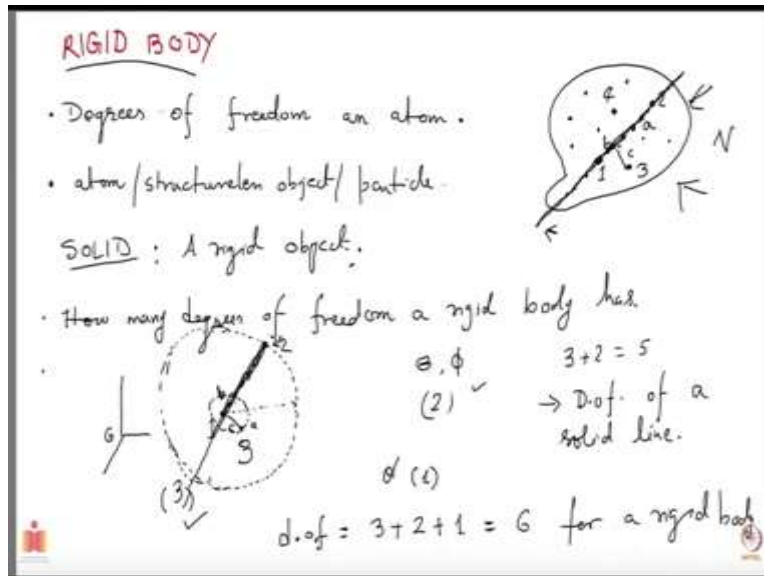 RIGID BODY
• Degrees of freedom an atom.
• atom/structurelen object/particle
SOLID : A rigid object.
• How many degrees of freedom a rigid body has
4
2
a
b
c
1
3
N
2
b
c
a
3
G
(3)
θ, φ
(2)
3+2 = 5
→ D.of. of a
solid line.
φ (1)
d.of = 3+2+1 = 6 for a rigid body